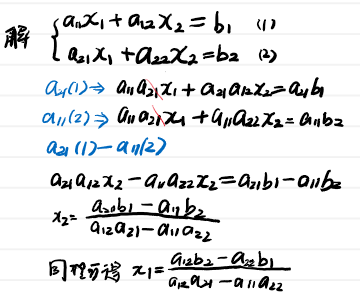 解 { a₁₁x₁ + a₁₂x₂ = b₁ (1)
a₂₁x₁ + a₂₂x₂ = b₂ (2)
a₂₁(1) → a₁₁a₂₁x₁ + a₂₁a₁₂x₂ = a₂₁b₁
a₁₁(2) ⇒ a₁₁a₂₁x₁ + a₁₁a₂₂x₂ = a₁₁b₂
a₂₁(1) - a₁₁(2)
a₂₁a₁₂x₂ - a₁₁a₂₂x₂ = a₂₁b₁ - a₁₁b₂
x₂ = (a₂₁b₁ - a₁₁b₂) / (a₁₂a₂₁ - a₁₁a₂₂)
同理可得 x₁ = (a₁₂b₂ - a₂₂b₁) / (a₁₂a₂₁ - a₁₁a₂₂)